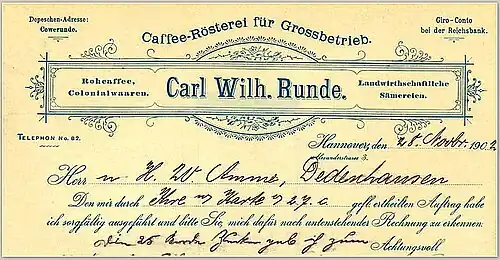 Depeschen-Adresse:
Cewerunde.
Giro-Conto
bei der Reichsbank.
Caffee-Rösterei für Grossbetrieb.
Rohcaffee,
Colonialwaaren.
Carl Wilh. Runde.
Landwirthschaftliche
Sämereien.
TELEPHON No. 82.
Hannover, den 28. Novbr. 1902
Herr n H. W Amme, Dedenhausen
Den mir durch Ihre Karte gefl. ertheilten Auftrag habe
ich sorgfältig ausgeführt und bitte Sie, mich dafür nach untenstehender Rechnung zu erkennen.
Achtungsvoll